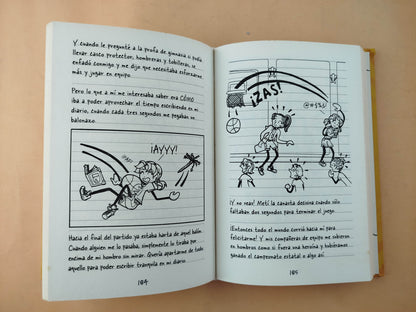 Y cuando le pregunté a la profa de gimnasia si podía
llevar casco protector, hombreras y tobilleras, se
enfadó conmigo y me dijo que necesitaba esforzarme
más y jugar en equipo.
Pero lo que a mí me interesaba saber era CÓMO
iba a poder aprovechar el tiempo escribiendo en mi
diario, cuando cada tres segundos me pegaban un
balonazo.
¡AYYY!
Hacia el final del partido ya estaba harta de aquel balón.
Cuando alguien me lo pasaba, simplemente lo tiraba por
encima de mi hombro sin mirar. Quería apartarme de todo
aquello para poder escribir tranquila en mi diario.
184
¡ZAS!
¡Y no veas! Metí la canasta decisiva cuando sólo
faltaban dos segundos para terminar el juego.
¡Entonces todo el mundo corrió hacia mí para
felicitarme! Y mis compañeras de equipo me subieron
en hombros como si fuera una heroína y hubiéramos
ganado el campeonato estatal o algo así.
185